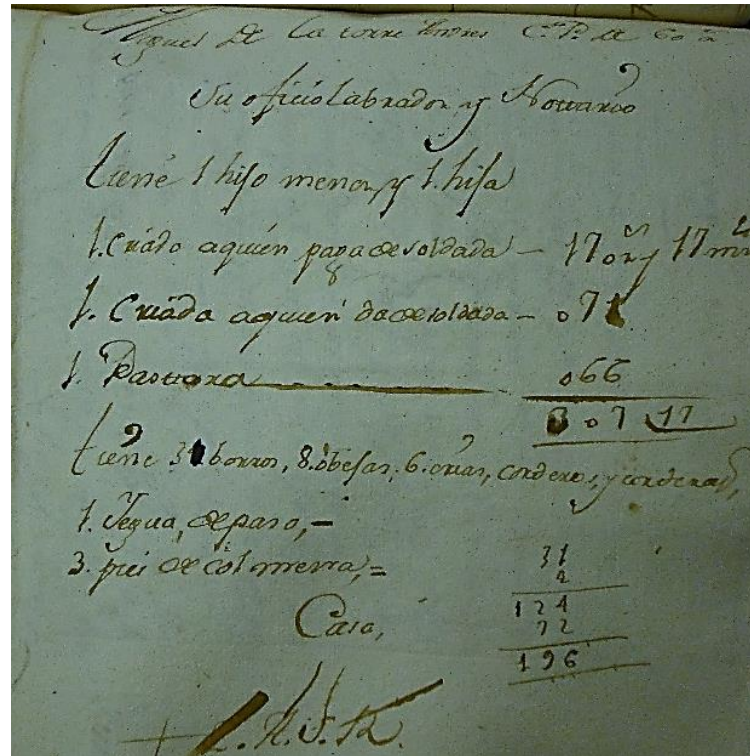 Miguel de la torre
Su oficio labrador y Notario
tiene 1 hijo menor y 1. hija
1. Criado aquien paga de soldada – 170 rs y 17 mrs
1. Criada aquien da de soldada – 071
1. Pastora 066
307 17
tiene borros, 8. obejas, 6. crias, corderos, y corderas,
1. Yegua, de paso, –
3. pies de colmena, =
31
4
124
72
196
Casa,